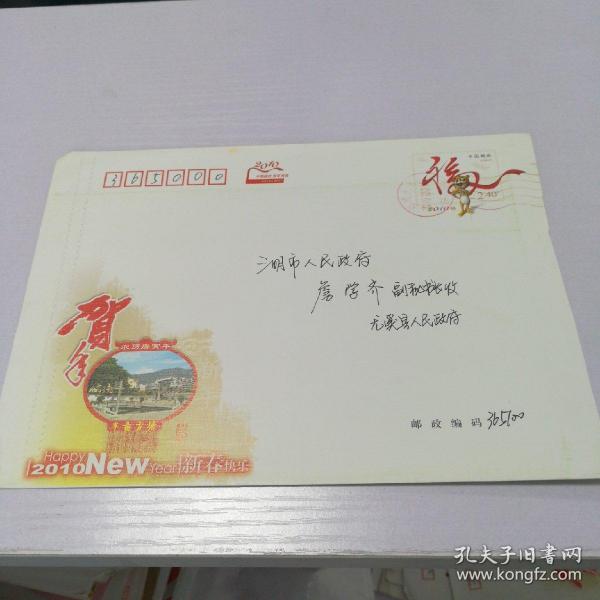 365000
2010
中国邮政
福
2.40元
三明市人民政府
詹学齐 副秘书长收
尤溪县人民政府
贺年
农历庚寅年
邮政编码 365100
Happy
2010 New Year 新春快乐
孔夫子旧书网
www.kongfz.com